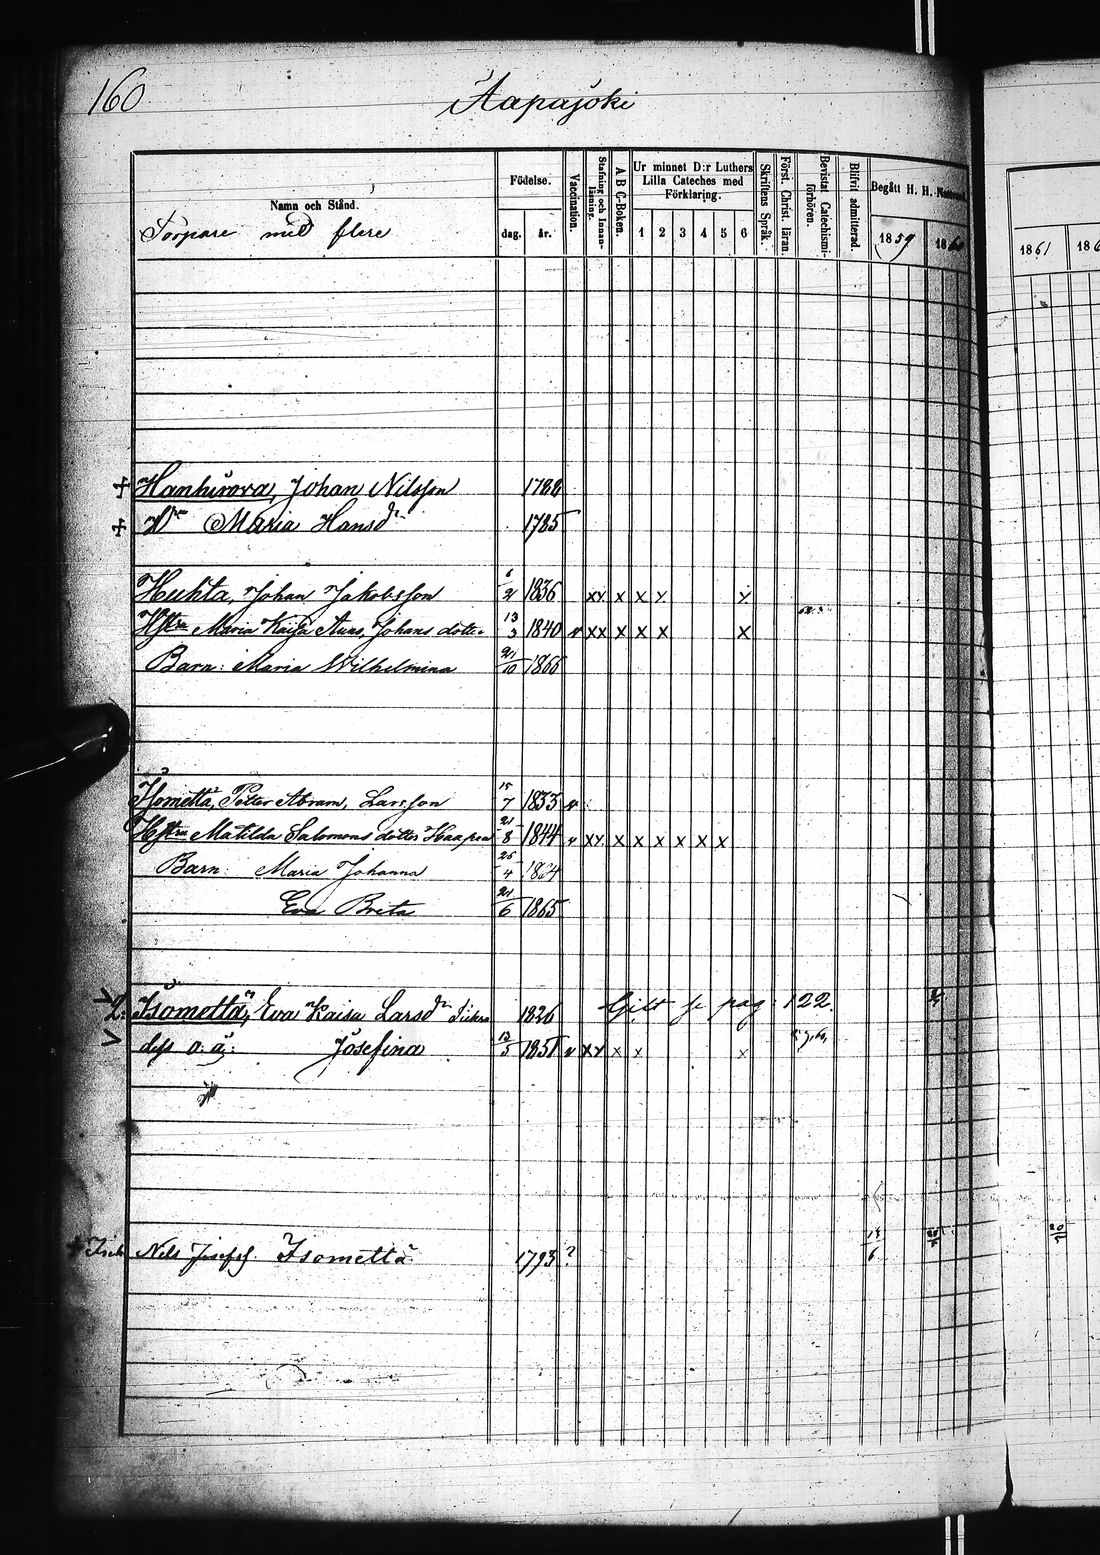 160
Aapajoki
Namn och Stånd.
Födelse.
dag. år.
Vaccination.
Stafning och Innanläsning.
A B C-Boken.
Ur minnet D:r Luthers Lilla Cateches med Förklaring.
1 2 3 4 5 6
Skriftens Språk.
Först. Christ. läran.
Bevistat Catechismiförhören.
Blifvit admitterad.
Begått H. H. Nattvard
1859 1860 1861 186
Torpare med flere
Hanhirova, Johan Nilsson 1788
Maria Hansdr 1785
Huhta, Johan Jakobsson 6/2 1836 xx x x x x
Hstru Maria Kaisa Johans dotter 13/3 1840 v xx x x x x
Barn: Maria Wilhelmina 21/10 1866
Isomettä, Petter Abram, Larsson 15/7 1833 v
Hstru Matilda Salomons dotter 21/8 1844 v xx x x x x x x
Barn: Maria Johanna 25/4 1864
Eva Breta 21/6 1865
Isometta, Eva Kaisa Larsdr 1826 Gift se pag: 122.
dess o. ä: Josefina 12/5 1851 v xx x x x
Nils Josefs. Isomettä 1793 ?